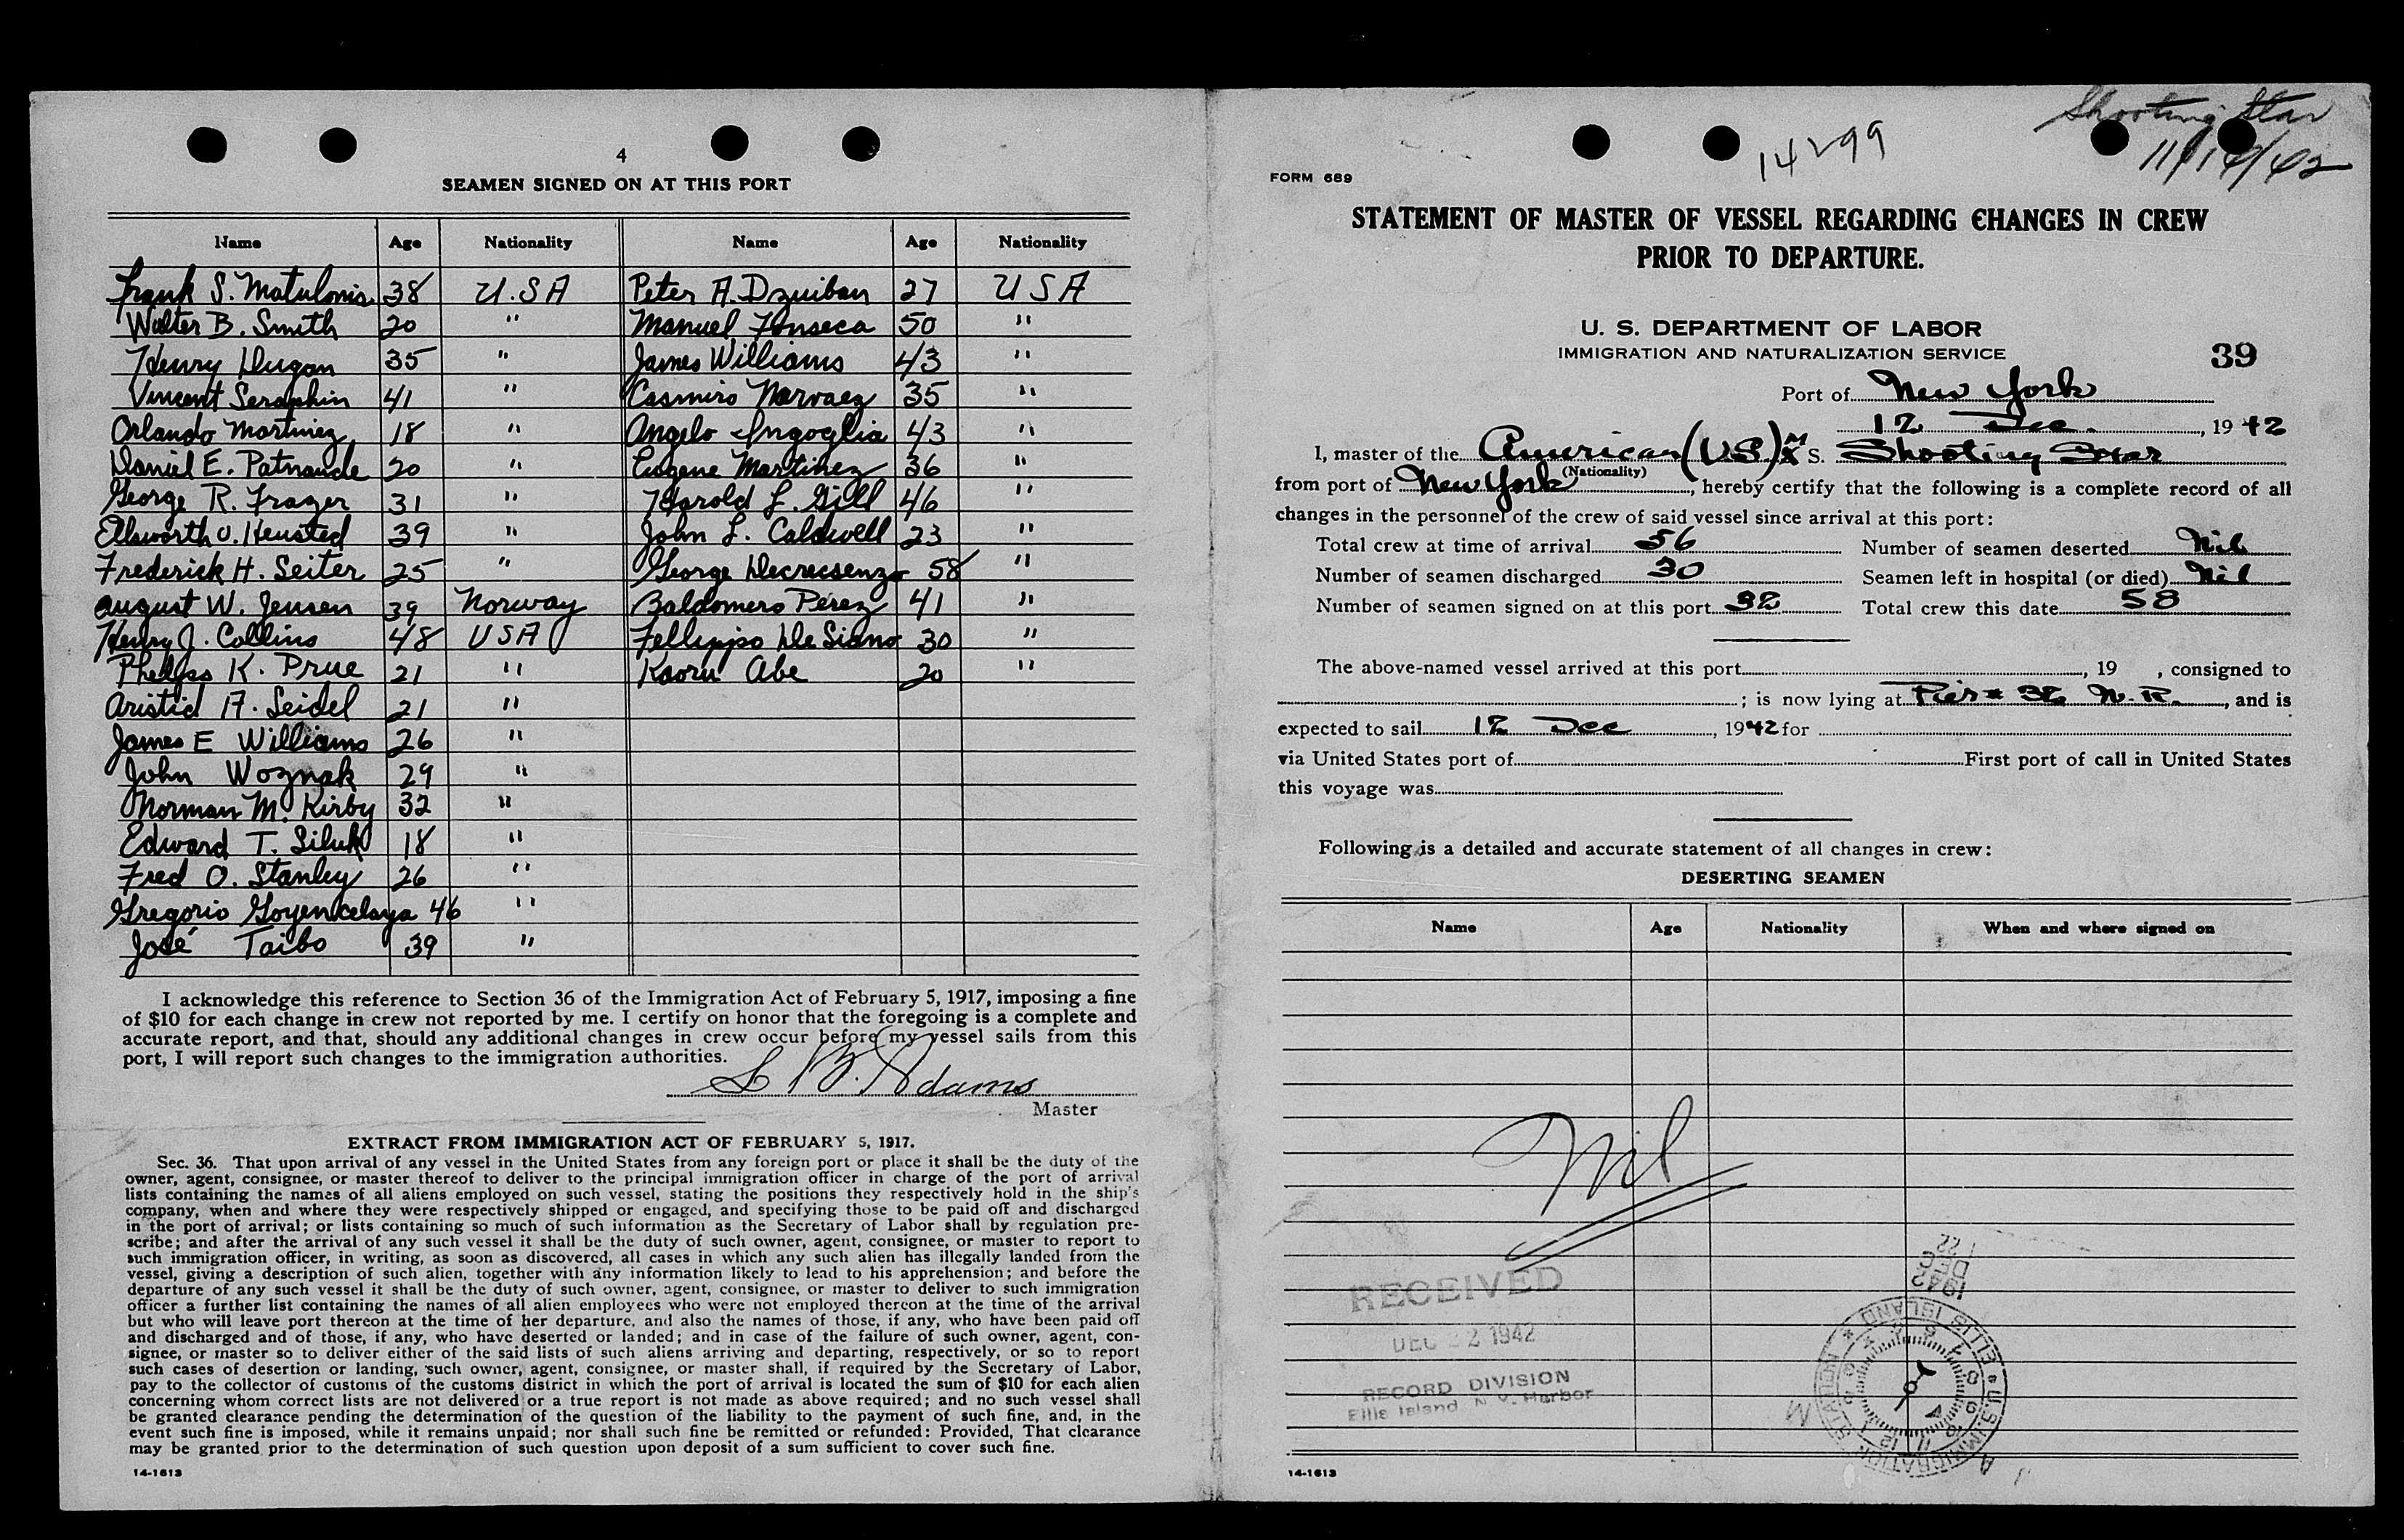 4
SEAMEN SIGNED ON AT THIS PORT
Name Age Nationality Name Age Nationality
Frank S. Matulonis 38 U.S.A Peter A. Dzuiban 27 U S A
Walter B. Smith 20 " Manuel Fonseca 50 "
Henry Dugan 35 " James Williams 43 "
Vincent Seraphin 41 " Casmiro Narvaez 35 "
Orlando Martinez 18 " Angelo Ingoglia 43 "
Daniel E. Patnaude 20 " Eugene Martinez 36 "
George R. Frazer 31 " Harold L. Gill 46 "
Ellsworth O. Heusted 39 " John L. Caldwell 23 "
Frederick H. Seiter 25 " George Decrecsenzo 58 "
August W. Jensen 39 Norway Baldomero Perez 41 "
Henry J. Collins 48 U S A Fellippo De Siano 30 "
Phelps K. Prue 21 " Kaoru Abe 20 "
Aristid A. Seidel 21 "
James E Williams 26 "
John Woznak 29 "
Norman M. Kirby 32 "
Edward T. Siluk 18 "
Fred O. Stanley 26 "
Gregorio Goyencelaya 46 "
José Taibo 39 "
I acknowledge this reference to Section 36 of the Immigration Act of February 5, 1917, imposing a fine
of $10 for each change in crew not reported by me. I certify on honor that the foregoing is a complete and
accurate report, and that, should any additional changes in crew occur before my vessel sails from this
port, I will report such changes to the immigration authorities.
L B. Adams
Master
EXTRACT FROM IMMIGRATION ACT OF FEBRUARY 5, 1917.
Sec. 36. That upon arrival of any vessel in the United States from any foreign port or place it shall be the duty of the
owner, agent, consignee, or master thereof to deliver to the principal immigration officer in charge of the port of arrival
lists containing the names of all aliens employed on such vessel, stating the positions they respectively hold in the ship's
company, when and where they were respectively shipped or engaged, and specifying those to be paid off and discharged
in the port of arrival; or lists containing so much of such information as the Secretary of Labor shall by regulation pre-
scribe; and after the arrival of any such vessel it shall be the duty of such owner, agent, consignee, or master to report to
such immigration officer, in writing, as soon as discovered, all cases in which any such alien has illegally landed from the
vessel, giving a description of such alien, together with any information likely to lead to his apprehension; and before the
departure of any such vessel it shall be the duty of such owner, agent, consignee, or master to deliver to such immigration
officer a further list containing the names of all alien employees who were not employed thereon at the time of the arrival
but who will leave port thereon at the time of her departure, and also the names of those, if any, who have been paid off
and discharged and of those, if any, who have deserted or landed; and in case of the failure of such owner, agent, con-
signee, or master so to deliver either of the said lists of such aliens arriving and departing, respectively, or so to report
such cases of desertion or landing, such owner, agent, consignee, or master shall, if required by the Secretary of Labor,
pay to the collector of customs of the customs district in which the port of arrival is located the sum of $10 for each alien
concerning whom correct lists are not delivered or a true report is not made as above required; and no such vessel shall
be granted clearance pending the determination of the question of the liability to the payment of such fine, and, in the
event such fine is imposed, while it remains unpaid; nor shall such fine be remitted or refunded: Provided, That clearance
may be granted prior to the determination of such question upon deposit of a sum sufficient to cover such fine.
14-1613
Shooting Star
14299
FORM 689
STATEMENT OF MASTER OF VESSEL REGARDING CHANGES IN CREW
PRIOR TO DEPARTURE.
U. S. DEPARTMENT OF LABOR
IMMIGRATION AND NATURALIZATION SERVICE
39
Port of New York
12 Dec., 1942
I, master of the American (US) M S. Shooting Star
(Nationality)
from port of New York, hereby certify that the following is a complete record of all
changes in the personnel of the crew of said vessel since arrival at this port:
Total crew at time of arrival 56 Number of seamen deserted Nil
Number of seamen discharged 30 Seamen left in hospital (or died) Nil
Number of seamen signed on at this port 32 Total crew this date 58
The above-named vessel arrived at this port , 19 , consigned to
; is now lying at Pier # 36 N. R., and is
expected to sail 12 Dec, 1942 for
via United States port of First port of call in United States
this voyage was
Following is a detailed and accurate statement of all changes in crew:
DESERTING SEAMEN
Name Age Nationality When and where signed on
Nil
1942 DEC 22
RECEIVED
DEC 22 1942
RECORD DIVISION
Ellis Island N Y. Harbor
U.S. IMMIGRATION STATION ELLIS ISLAND
14-1613